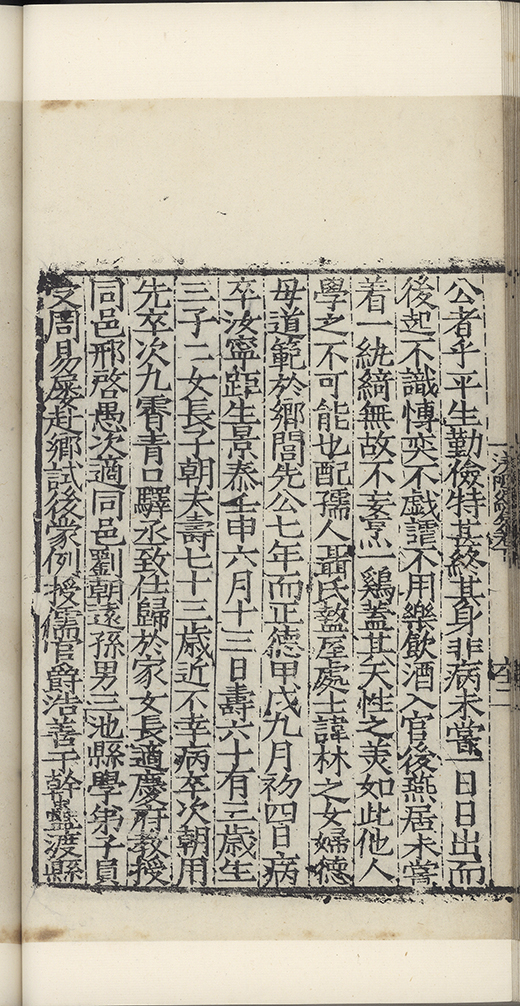 公者乎平生勤儉特甚終其身非病未嘗一日日出而
後起不識愽奕不戯謔不用樂飲酒入官後燕居未嘗
着一紈綺無故不妄烹一鷄蓋其天性之美如此他人
學之不可能也配孺人聶氏盩厔處士諱林之女婦德
母道範於鄉閭先公七年而正德甲戊九月初四日病
卒汝寧距生景泰壬申六月十三日壽六十有三歲生
三子二女長子朝夫壽七十三歲近不幸病卒次朝用
先卒次九霄青口驛丞致仕歸於家女長適慶府教授
同邑邢啓愚次適同邑劉朝遠孫男三池縣學弟子員
受周易屡赴鄉試後衆例授儒官爵浩善于幹蠱渡縣